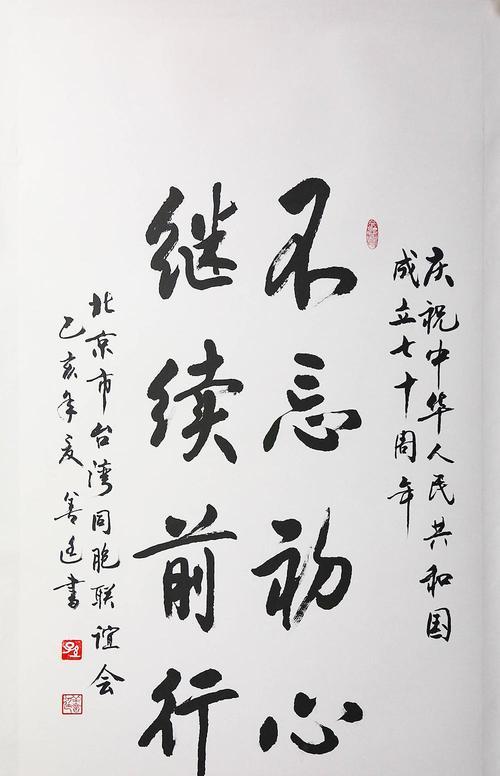 庆祝中华人民共和国
成立七十周年
不忘初心
继续前行
北京市台湾同胞联谊会
己亥年夏善廷书